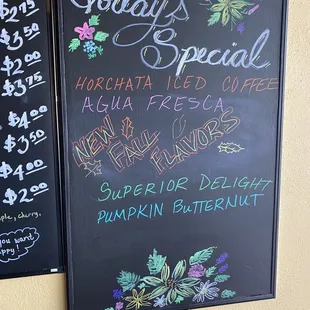 $3.50
$2.00
$3.75
$4.00
$3.50
$4.00
$2.00
cherry,
you want
Today's
Special
HORCHATA ICED COFFEE
AGUA FRESCA
NEW FALL FLAVORS
SUPERIOR DELIGHT
PUMPKIN BUTTERNUT